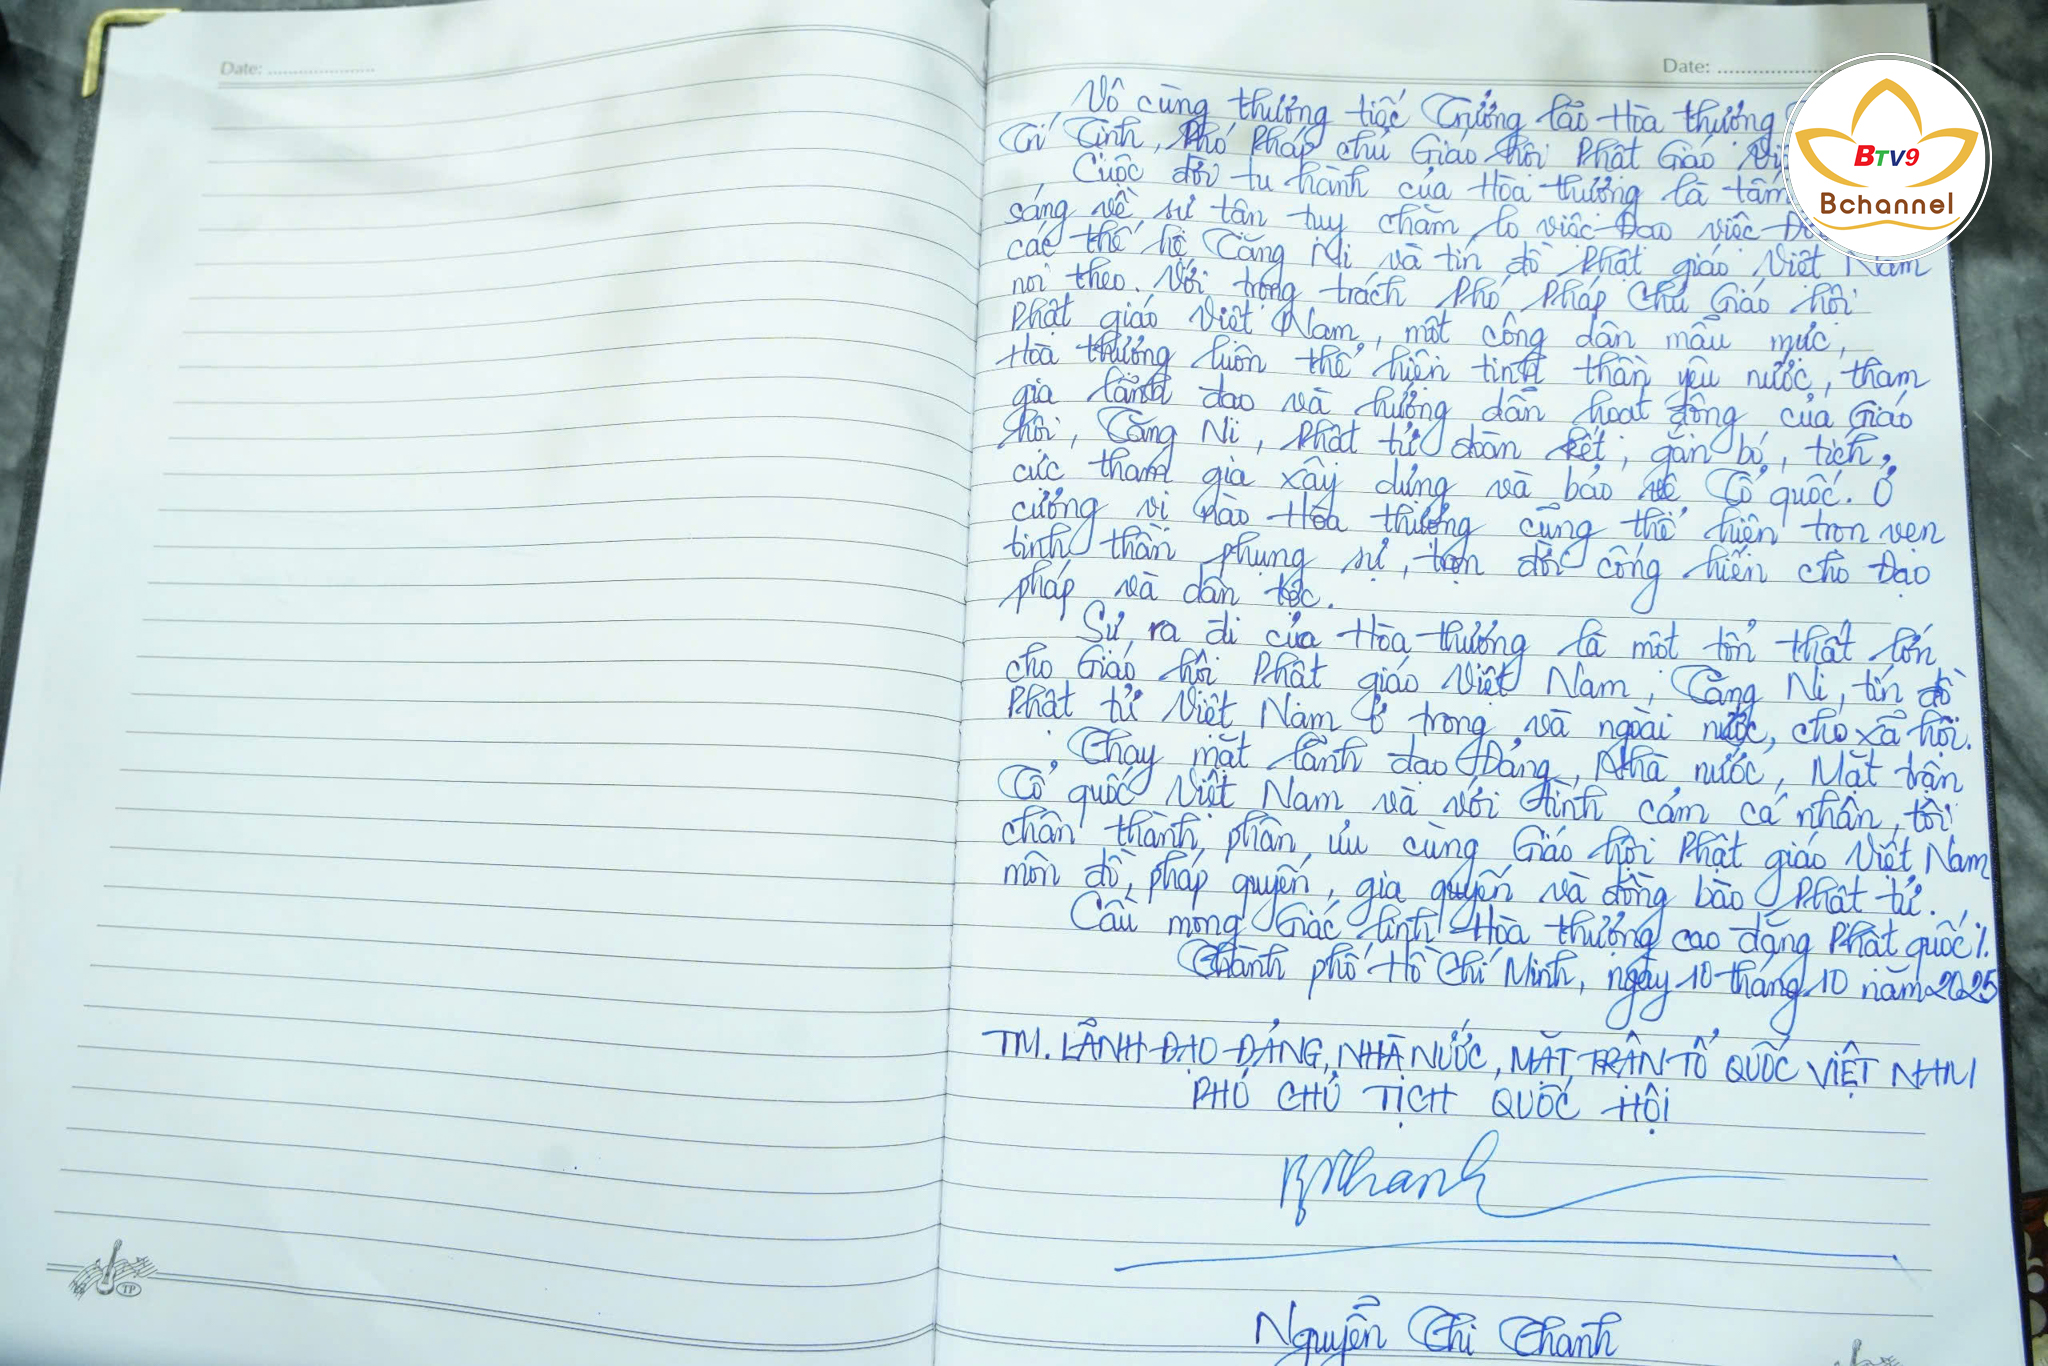 Date: .....................
Date: .....................
BTV9
Bchannel
Vô cùng thương tiếc Trưởng lão Hòa thượng
Trí Tịnh, Phó Pháp chủ Giáo hội Phật Giáo Vi
Cuộc đời tu hành của Hòa thượng là tấm
sáng về sự tận tụy chăm lo việc Đạo việc Đ
các thế hệ Tăng Ni và tín đồ Phật giáo Việt Nam
noi theo. Với trọng trách Phó Pháp Chủ Giáo hội
Phật giáo Việt Nam, một công dân mẫu mực,
Hòa thượng luôn thể hiện tinh thần yêu nước, tham
gia lãnh đạo và hướng dẫn hoạt động của Giáo
hội, Tăng Ni, Phật tử đoàn kết, gắn bó, tích
cực tham gia xây dựng và bảo vệ Tổ quốc. Ở
cương vị nào Hòa thượng cũng thể hiện trọn vẹn
tinh thần phụng sự, trọn đời cống hiến cho Đạo
pháp và dân tộc.
Sự ra đi của Hòa thượng là một tổn thất lớn
cho Giáo hội Phật giáo Việt Nam, Tăng Ni, tín đồ
Phật tử Việt Nam ở trong và ngoài nước, cho xã hội.
Thay mặt lãnh đạo Đảng, Nhà nước, Mặt trận
Tổ quốc Việt Nam và với tình cảm cá nhân, tôi
chân thành phân ưu cùng Giáo hội Phật giáo Việt Nam
môn đồ, pháp quyến, gia quyến và đồng bào Phật tử.
Cầu mong Giác linh Hòa thượng cao đăng Phật quốc./.
Thành phố Hồ Chí Minh, ngày 10 tháng 10 năm 2025
TM. LÃNH ĐẠO ĐẢNG, NHÀ NƯỚC, MẶT TRẬN TỔ QUỐC VIỆT NAM
PHÓ CHỦ TỊCH QUỐC HỘI
Nguyễn Thị Thanh
TP